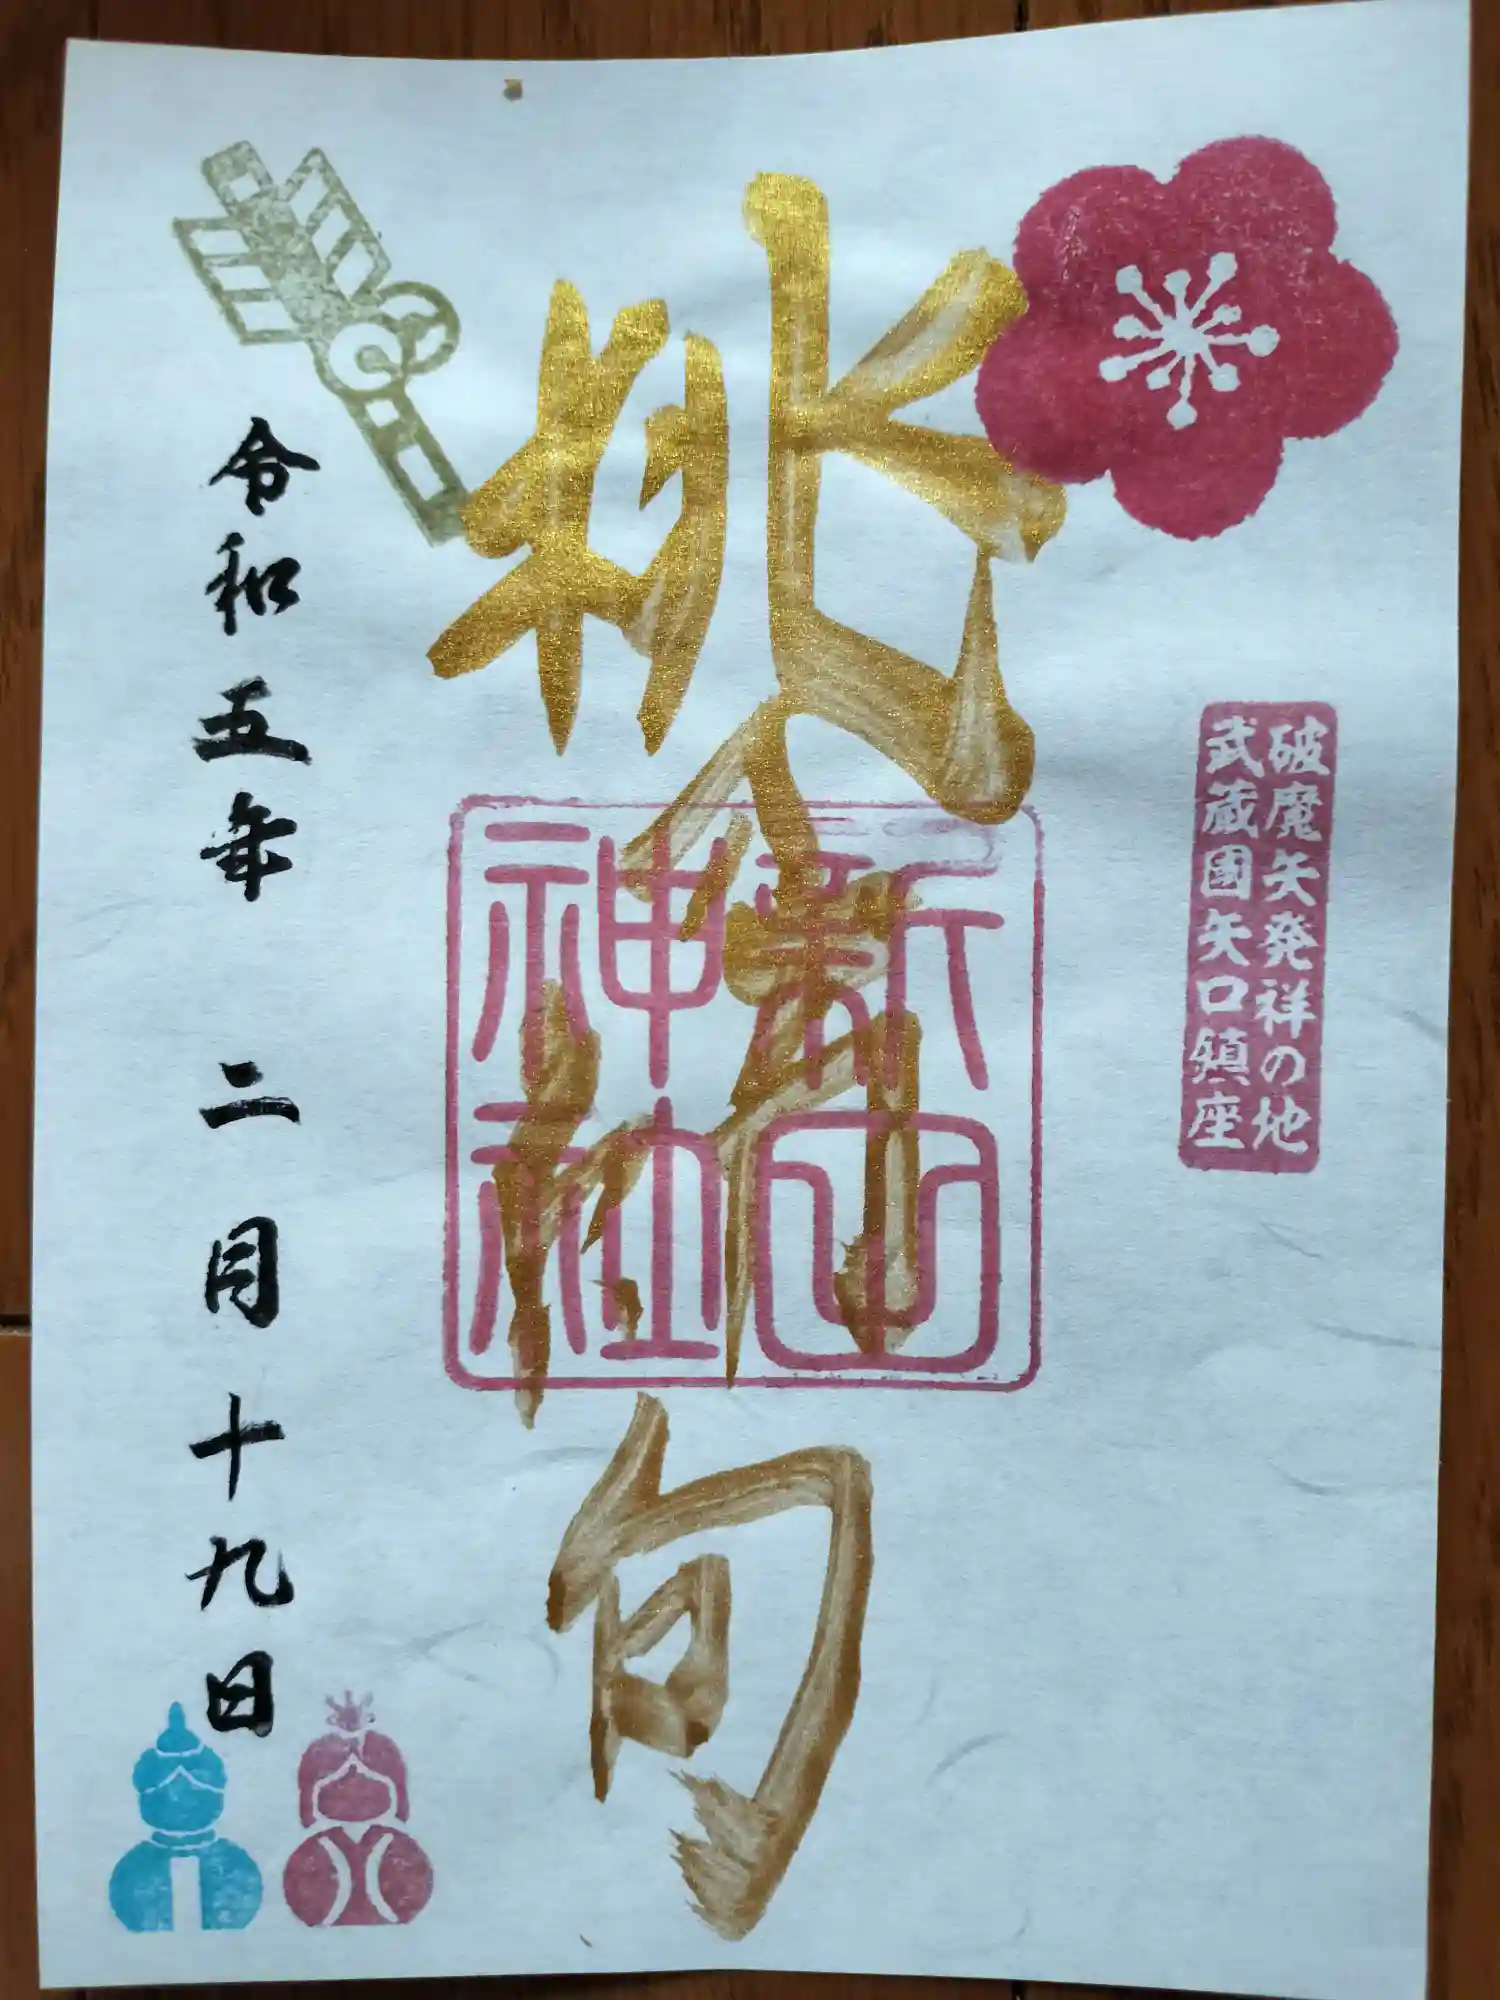 破魔矢発祥の地
武蔵國矢口鎮座
桃節句
新田
神社
令和五年 二月十九日